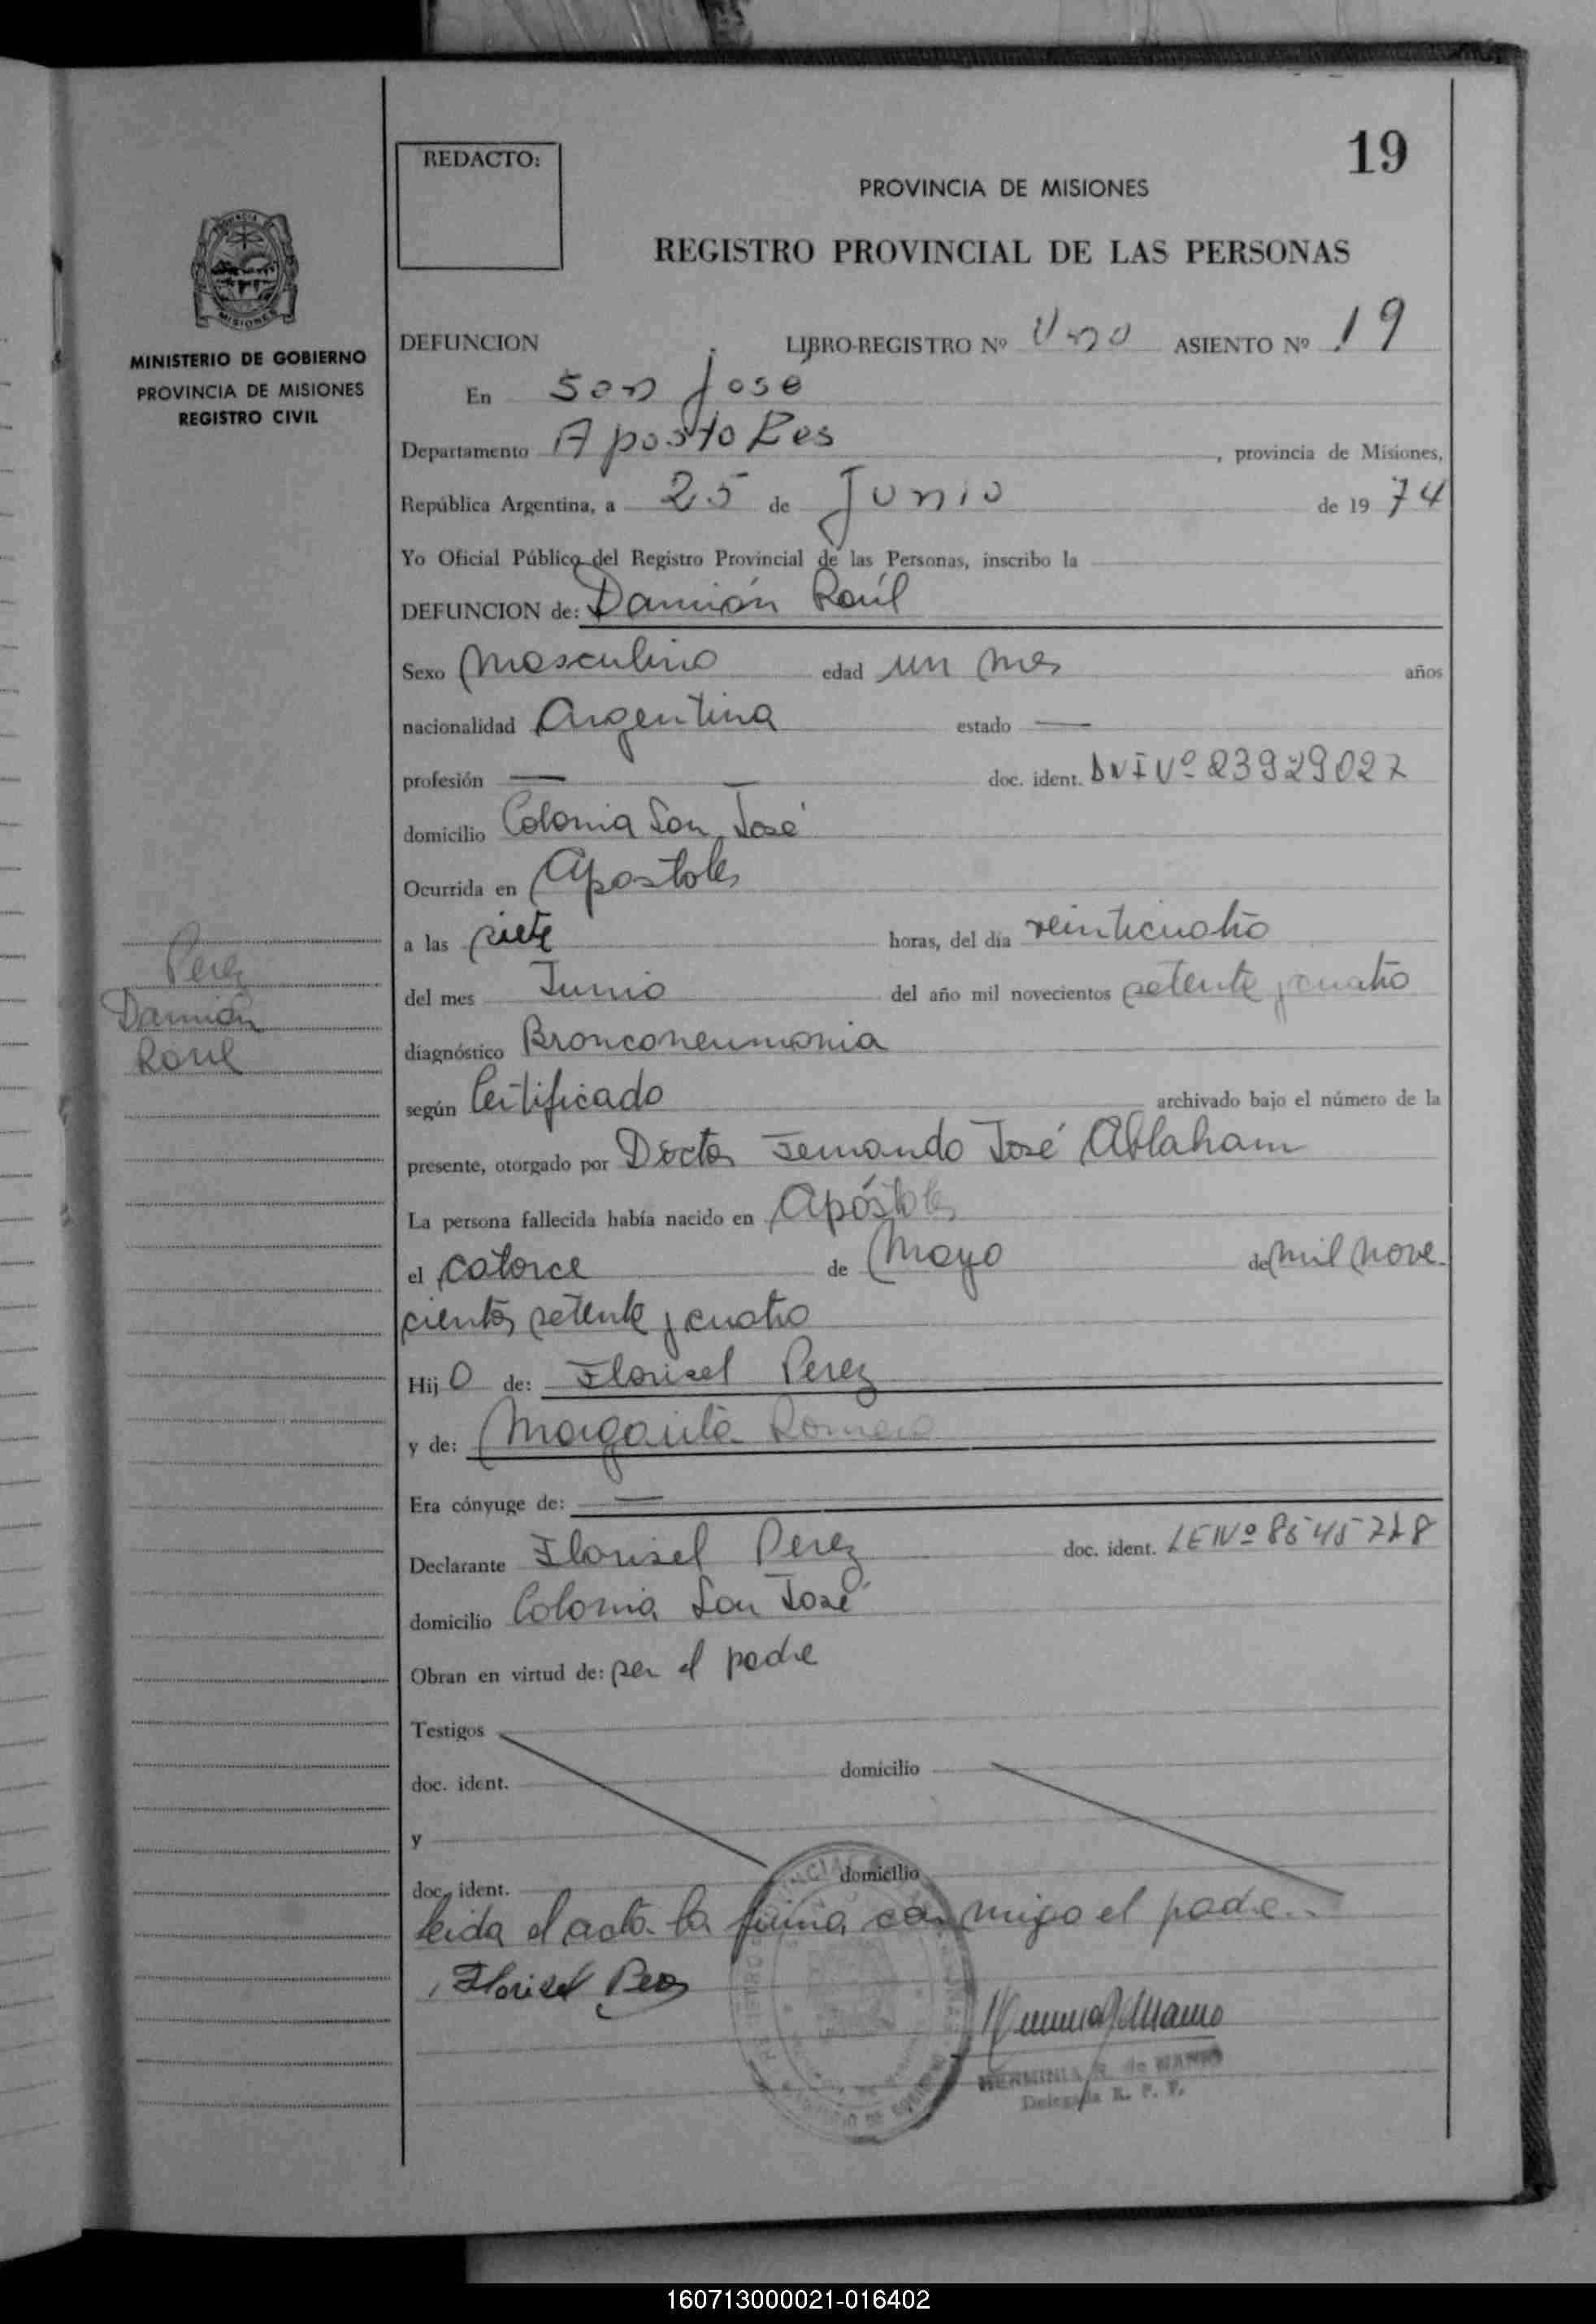 19
REDACTO:
PROVINCIA DE MISIONES
REGISTRO PROVINCIAL DE LAS PERSONAS
MISIONES
MINISTERIO DE GOBIERNO
PROVINCIA DE MISIONES
REGISTRO CIVIL
DEFUNCION LIBRO-REGISTRO Nº Uno ASIENTO Nº 19
En San José
Departamento Apostoles, provincia de Misiones,
República Argentina, a 25 de Junio de 19 74
Yo Oficial Público del Registro Provincial de las Personas, inscribo la
DEFUNCION de: Damián Raúl
Sexo Masculino edad un mes años
nacionalidad Argentina estado —
profesión — doc. ident. DNI Nº 23929027
domicilio Colonia San José
Ocurrida en Apostoles
a las siete horas, del día veinticuatro
del mes Junio del año mil novecientos setenta y cuatro
diagnóstico Bronconeumonia
según Certificado archivado bajo el número de la
presente, otorgado por Doctor Fernando José Ablaham
La persona fallecida había nacido en Apóstoles
el catorce de Mayo de mil nove-
cientos setenta y cuatro
Hijo de: Florisel Perez
y de: Margarita Romero
Era cónyuge de: —
Declarante Florisel Perez doc. ident. LE Nº
domicilio Colonia San José
Obran en virtud de: ser el padre
Testigos
doc. ident. domicilio
y
doc. ident. domicilio
leida el acta la firma conmigo el padre.
Florisel Perez
HERMINIA R. de
Delegada R. P. P.
Perez
Damián
Raul
160713000021-016402